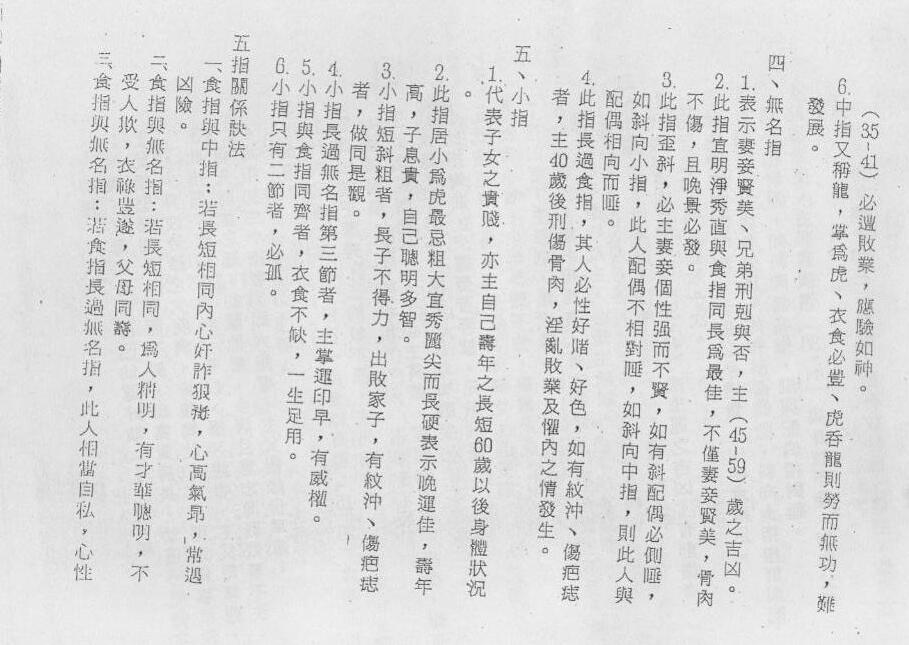 (35-41)必遭敗業，應驗如神。
6.中指又稱龍，掌為虎、衣食必豐、虎吞龍則勞而無功，難
發展。
四、無名指
1.表示妻妾賢美、兄弟刑剋與否，主(45-59)歲之吉凶。
2.此指宜明淨秀直與食指同長為最佳，不僅妻妾賢美，骨肉
不傷，且晚景必發。
3.此指歪斜，必主妻妾個性强而不賢，如有斜配偶必側睡，
如斜向小指，此人配偶不相對睡，如斜向中指，則此人與
配偶相向而睡。
4.此指長過食指，其人必性好賭、好色，如有紋沖、傷疤痣
者，主40歲後刑傷骨肉，淫亂敗業及懼內之情發生。
五、小指
1.代表子女之貴賤，亦主自己壽年之長短60歲以後身體狀況
。
2.此指居小為虎最忌粗大宜秀麗尖而長硬表示晚運佳，壽年
高，子息貴，自己聰明多智。
3.小指短斜粗者，長子不得力，出敗家子，有紋沖、傷疤痣
者，做同是觀。
4.小指長過無名指第三節者，主掌運印早，有威權。
5.小指與食指同齊者，衣食不缺，一生足用。
6.小指只有二節者，必孤。
五指關係訣法
一、食指與中指：若長短相同內心奸詐狠毒，心高氣昂，常遇
凶險。
二、食指與無名指：若長短相同，為人精明，有才華聰明，不
受人欺，衣祿豐遂，父母同壽。
三、食指與無名指：若食指長過無名指，此人相當自私，心性